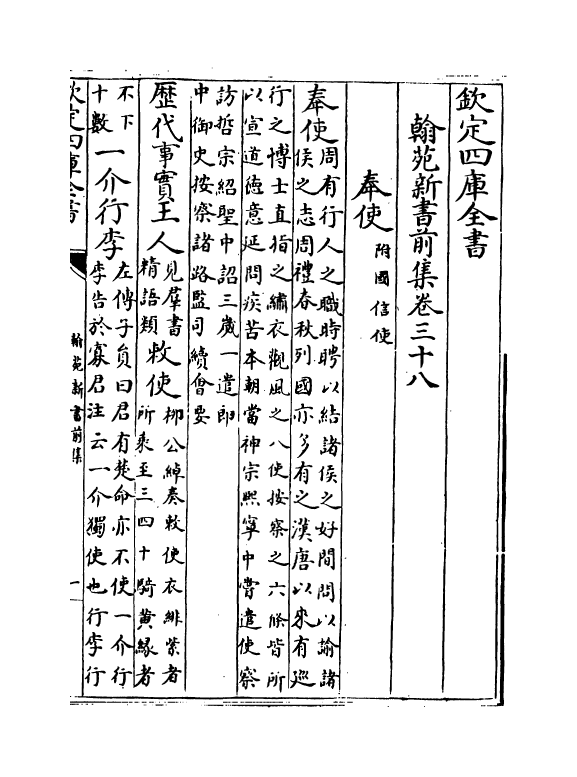 欽定四庫全書
翰苑新書前集卷三十八
奉使 附國信使
奉使 周有行人之職時聘以結諸侯之好間問以諭諸
侯之志周禮春秋列國亦多有之漢唐以來有巡
行之博士直指之繡衣觀風之八使按察之六條皆所
以宣道徳意延問疾苦本朝當神宗熙寧中嘗遣使察
訪哲宗紹聖中詔三歲一遣郎
中御史按察諸路監司續會要
歷代事實王人 見羣書
精語類 敕使 柳公綽奏敕使衣緋紫者
所乘至三四十騎黄緑者
不下
十數 一介行李 左傳子員曰君有楚命亦不使一介行
李告於寡君注云一介獨使也行李行
欽定四庫全書
翰苑新書前集
一